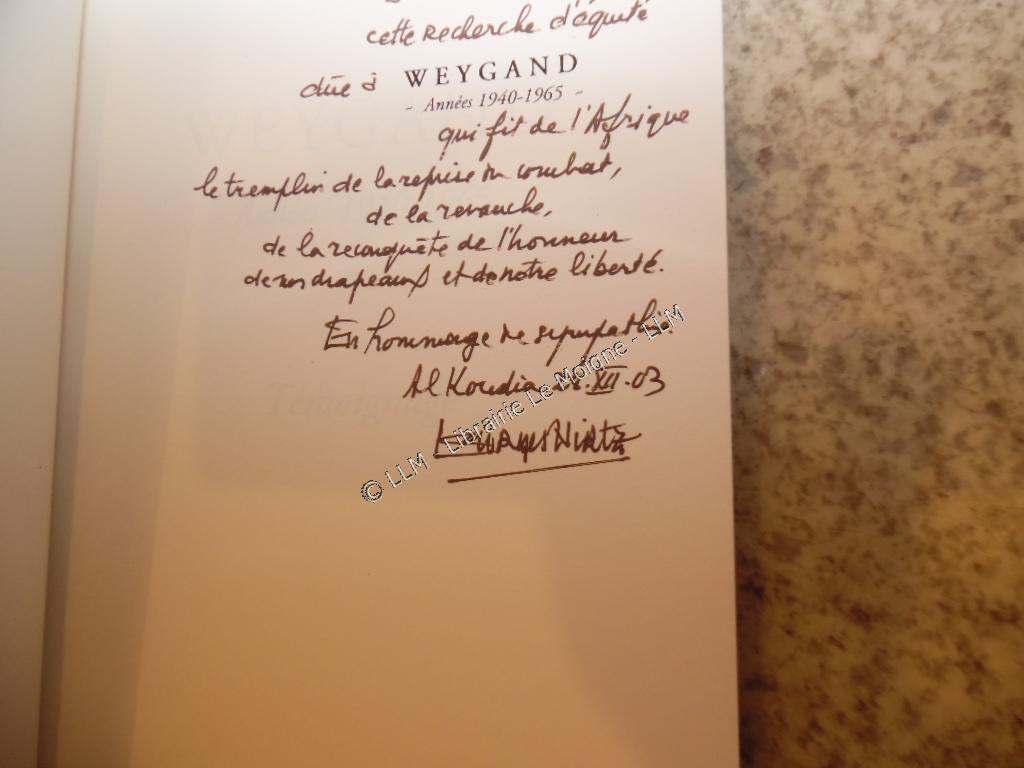 cette recherche d'équité
dûe à WEYGAND
- Années 1940-1965 -
qui fit de l'Afrique
le tremplin de la reprise du combat,
de la revanche,
de la reconquête de l'honneur
de nos drapeaux et de notre liberté.
En hommage de sympathie.
Al Koudia XII.03
© LLM - Librairie Le Moigne - LLM
WEYGAND
Témoignage